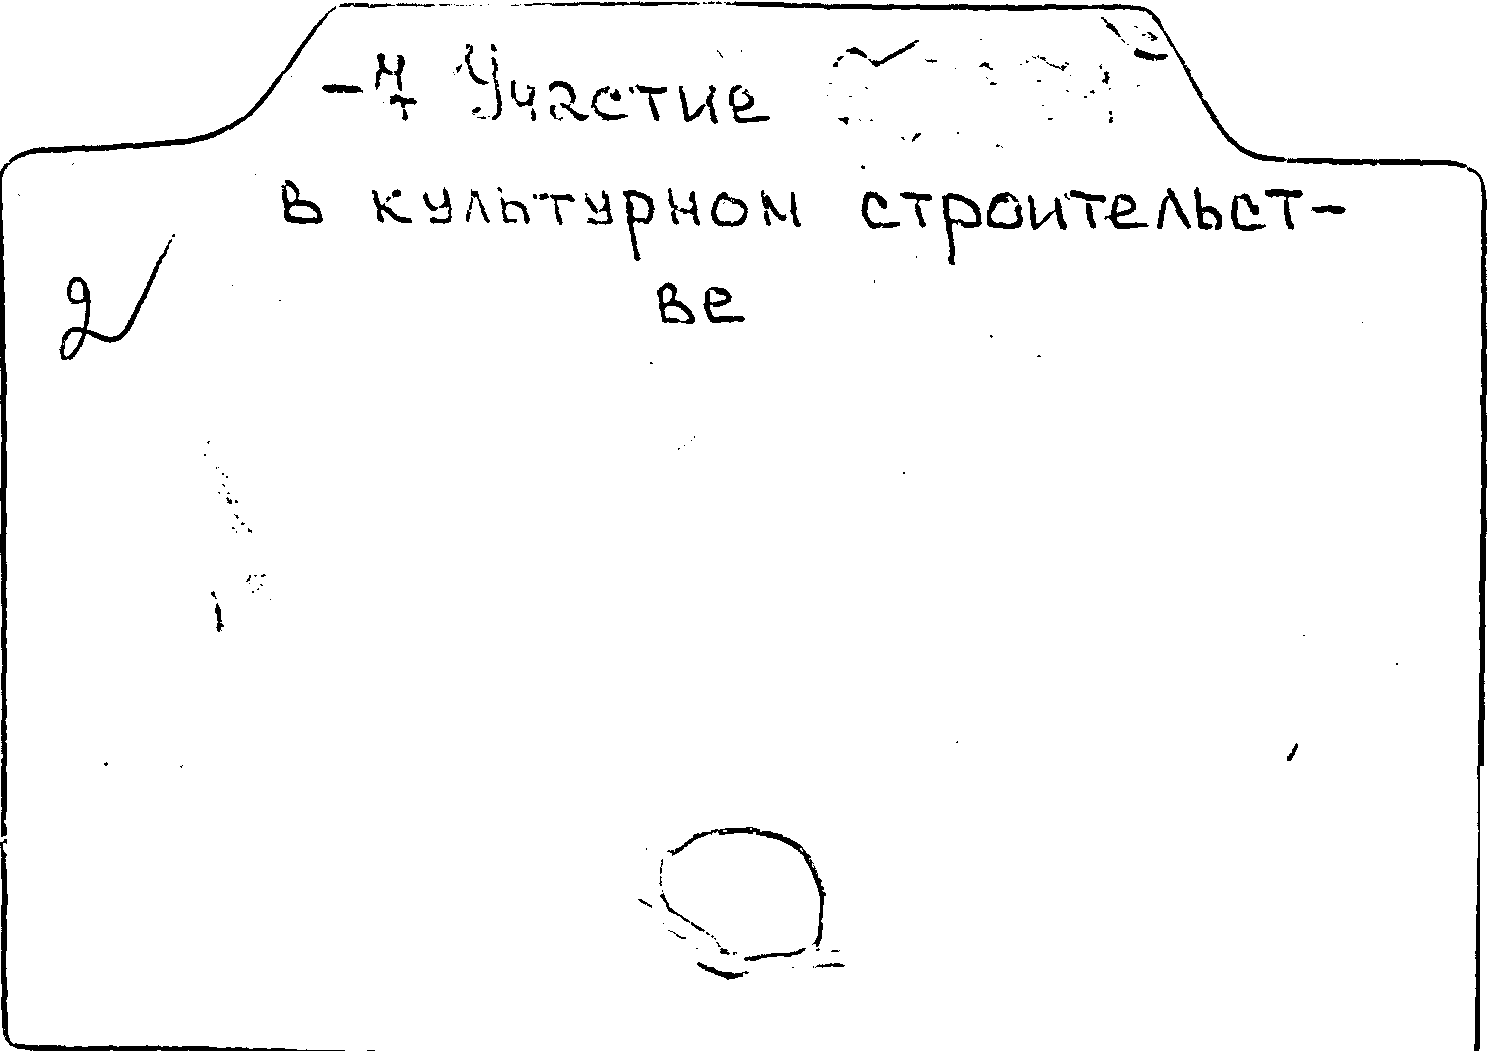 - 7 Участие
в культурном строительст-
ве
2